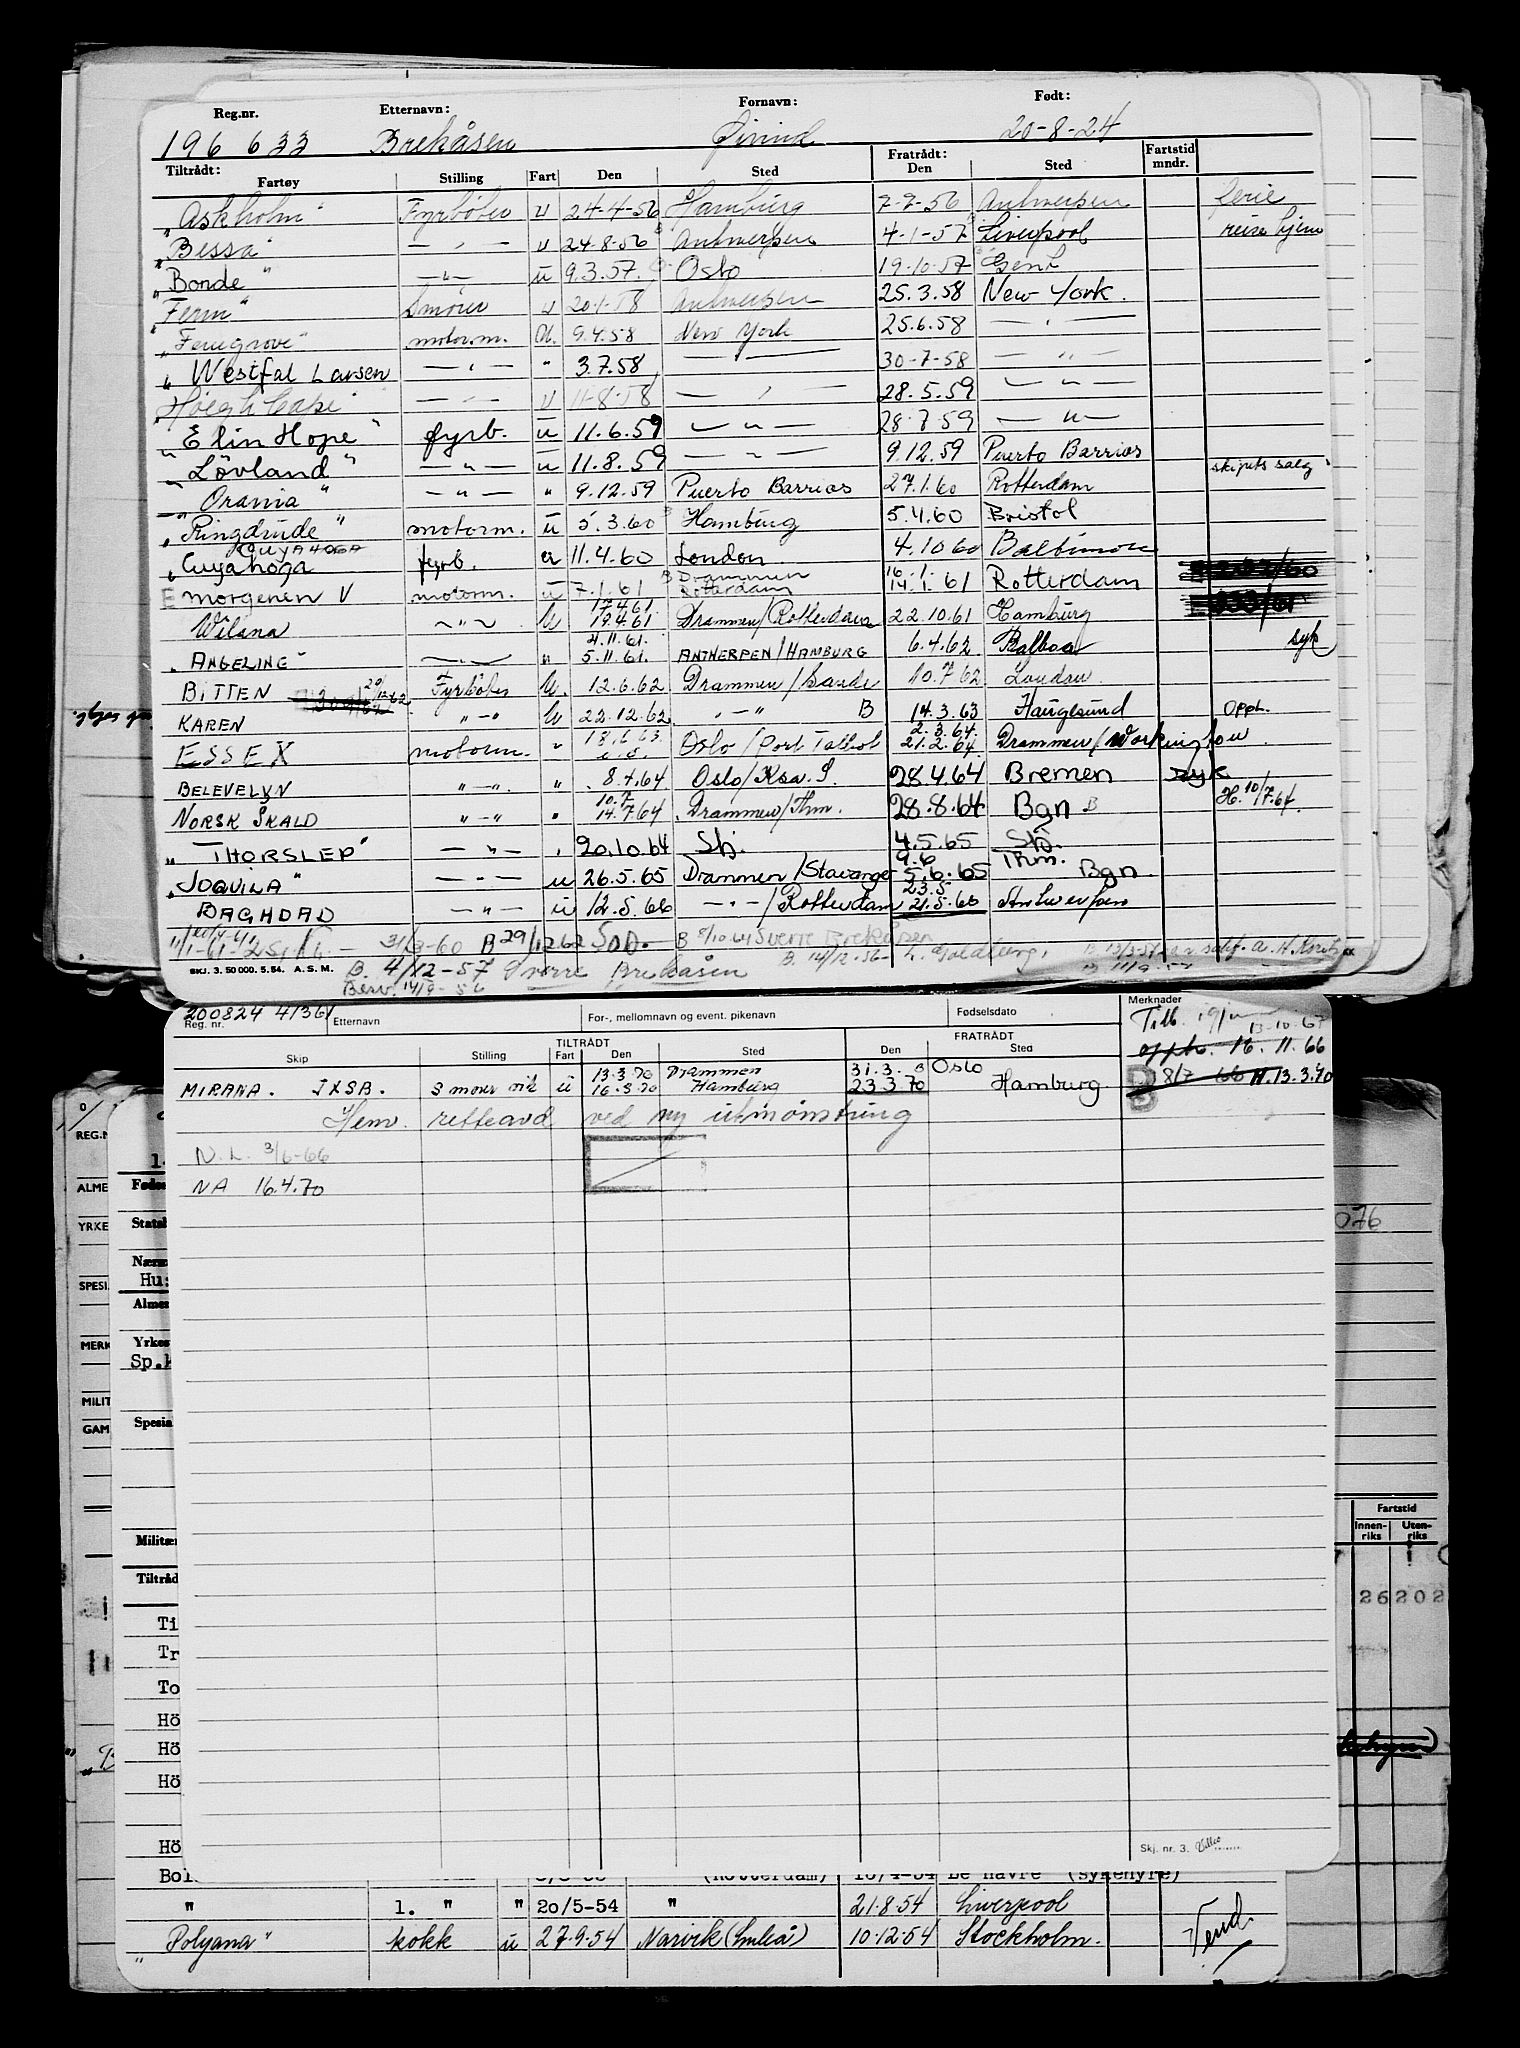 Reg.nr. Etternavn: Fornavn: Født:
196 633 Brekåsen Øivind 20-8-24
Tiltrådt: Fratrådt: Fartstid mndr.
Fartøy Stilling Fart Den Sted Den Sted
"Askholm" Fyrbøter u 24-4-56 Hamburg 7-7-56 Antwerpen ferie
"Bessa" — " — u 24-8-56 Antwerpen 4-1-57 Liverpool reise hjem
"Borde" — " — u 9.3.57. Oslo 19-10-57 Gent
"Ferm" Smører u 20-1-58 Antwerpen 25.3.58 New York.
"Ferngrove" motorm. U. 9.4.58 New York 25.6.58 — " —
"Westfal Larsen — " — " 3.7.58 — " — 30-7-58 — " —
Höegh Cape — " — u 11-8-58 — " — 28.5.59 — " —
"Elin Hope" fyrb. u 11.6.59 — " — 28.7.59 — " —
"Lövland" — " — u 11.8.59 — " — 9.12.59 Puerto Barrios
"Orania" — " — " 9.12.59 Puerto Barrios 27.1.60 Rotterdam skipets salg
"Ringdrude" motorm. u 5.3.60 Hamburg 5.4.60 Bristol
CUYAHOGA
"Cuyahoga fyrb. u 11.4.60 London 4.10.60 Baltimore
E morgenen V motorm. u 7.1.61 B Drammen Rotterdam 16.1. 14.1.61 Rotterdam
Wilana — " — u 17.4.61. 19.4.61 Drammen/Rotterdam 22.10.61 Hamburg
"ANGELINE" — " — " 4.11.61. 5.11.61. ANTWERPEN/HAMBURG 6.4.62 Balboa syk
BITTEN 29/12-62 Fyrbøter u. 12.6.62 Drammen/Sande 10.7.62 London.
KAREN " — " u 22.12.62 " — " B 14.3.63 Haugesund oppt.
ESSEX motorm. " 18.6.63. Oslo/Port Talbot 2.3.64. 21.2.64 Drammen/Workington
BELEVELYN " — " " 8.4.64 Oslo/Ksa. S. 28.4.64 Bremen syk
NORSK SKALD " — " " 10.7 14.7.64 Drammen/Thm. 28.8.64 Bgn B H. 10/7.64.
"THORSLEP" — " — " 20.10.64 Stj. 4.5.65 Stj.
"JOQUILA" — " — u 26.5.65 Drammen/Stavanger 9.6 5.6.65 Thm. Bgn
BAGHDAD — " — u 12.5.66 — " — /Rotterdam 23.5 21.5.66 Antwerpen
31/3-60 B 29/12 62 B 8/10 64 Sverre Brekåsen
SKJ. 3. 50 000. 5. 54. A. S. M. B. 4/12-57 Sverre Brekåsen B. 14/12.56- L. Goldberg.
Berv. 14/9-56
200824 41361
Reg. nr. Etternavn For-, mellomnavn og event. pikenavn Fødselsdato Merknader
13-10-67
oppb. 16.11.66
TILTRÅDT FRATRÅDT
Skip Stilling Fart Den Sted Den Sted
8/7 66 H.13.3.70
MIRANA. JXSB. Smører vik u 13.3.70 16.3.70 Drammen Hamburg 31.3. 23.3.70 Oslo Hamburg.
Henv. rette avd ved ny utmønstring
N.L. 3/6-66
NA 16.4.70
Skj. nr. 3.
REG.N
ALME
YRKE
SPESI
MERK
MILIT
GAM
Fødse
Statsb
Nærm
Hu:
Almer
Yrkes
Sp.k
Spesia
Militær
Tiltråd
Ti
Tr
To
Hö
Hö
Hö
Hö
076
Fartstid
Innen-riks Uten-riks
26202
Bol (Rotterdam) 18/4-54 Le Havre (sykehyre)
" 1. " " 20/5-54 " 21.8.54 Liverpool
"Polyana" kokk u 27.9.54 Narvik 10.12.54 Stockholm. Vend.